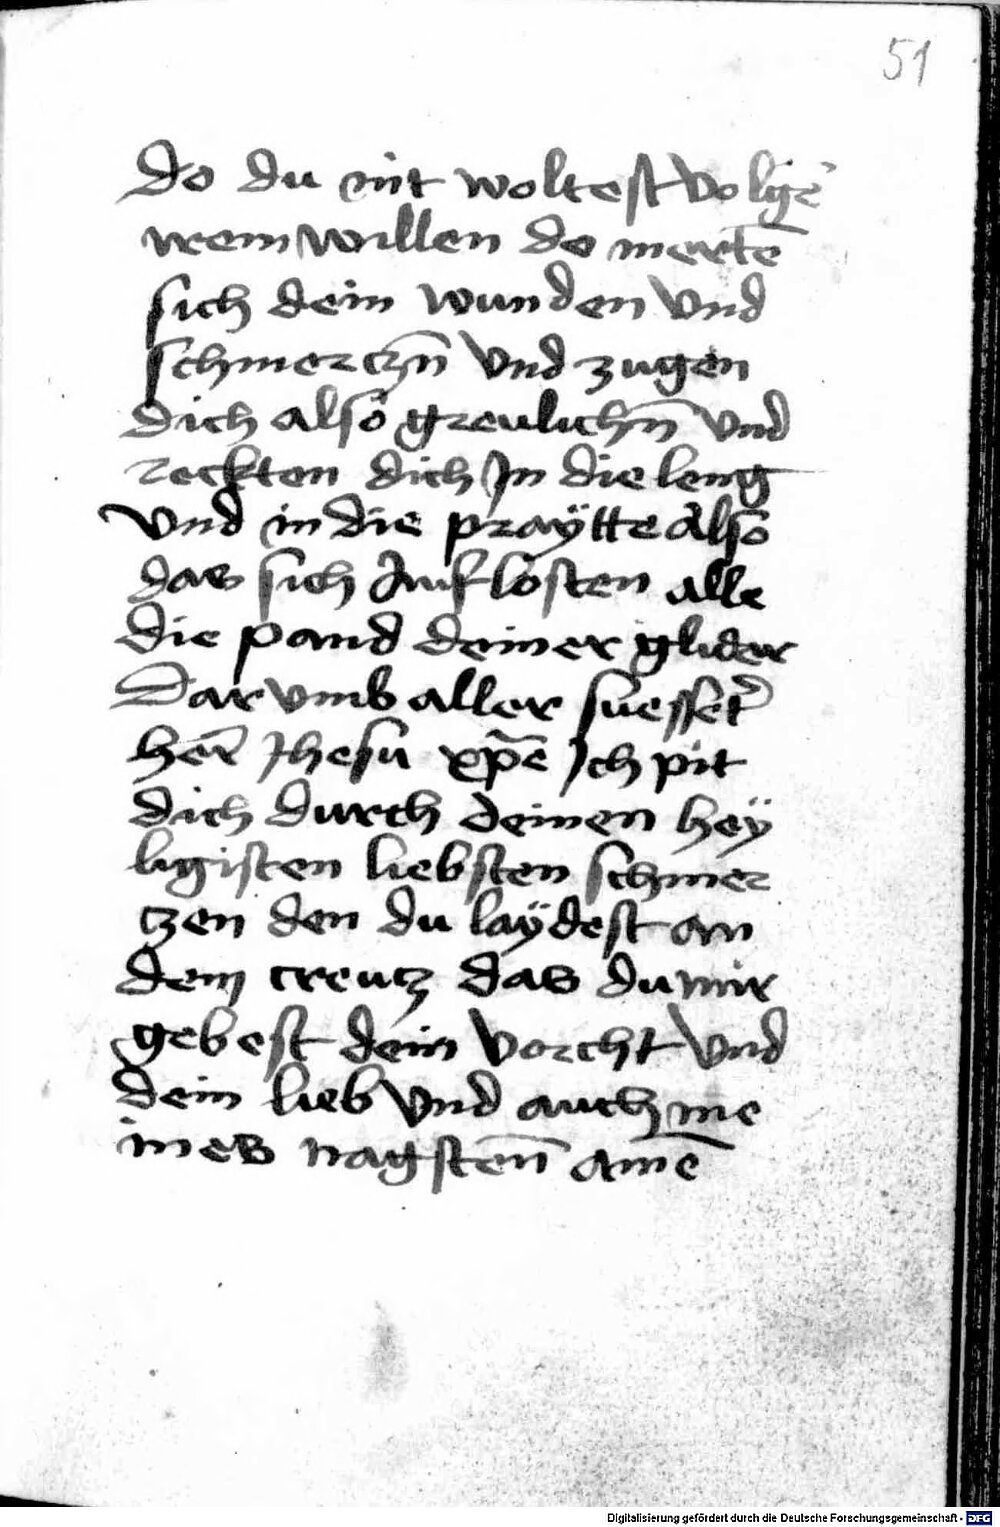 51
do du nit woltest volgē
irem willen do mertē
sich dein wunden vnd
schmerczn̄ vnd zugen
dich also greulichn̄ vnd
reckten dich In die leng
vnd in die praÿtte also
das sich Auf losten alle
die pand deiner glider
Dar vmb aller suesset̕
her̄ Jhesu xp̄e Jch pit
dich durch deinen heÿ
ligisten liebsten schmer
tzen den du laÿdest an
dem creutz das du mir
gebest dein vorcht vnd
dein lieb vnd auch me
ines nagsten̄ amē
Digitalisierung gefördert durch die Deutsche Forschungsgemeinschaft - DFG